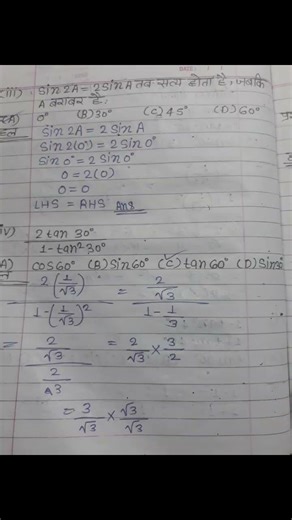 (iii) Sin2A = 2SinA तब सत्य होता है, जबकि
A बराबर है:
(A) 0° (B) 30° (C) 45° (D) 60°
हल Sin2A = 2SinA
Sin2(0°) = 2Sin0°
Sin0° = 2Sin0°
0 = 2(0)
0 = 0
LHS = RHS Ans
iv) 2tan30° / 1-tan²30°
A) COS60° (B) Sin60° (C) tan60° (D) Sin30°
2(1/√3) / 1-(1/√3)² = 2/√3 / 1-1/3
= 2/√3 / 2/3 = 2/√3 × 3/2
= 3/√3 × √3/√3